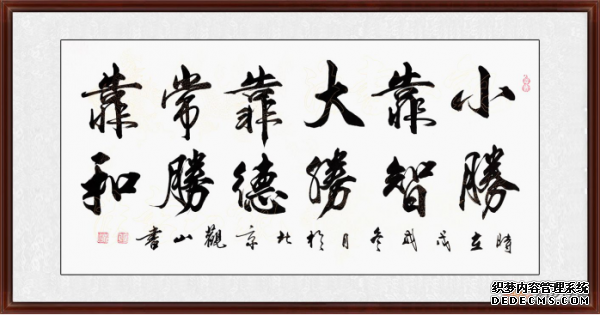 小勝
靠智
大勝
靠德
常勝
靠和
時在戊戌冬月於北京觀山書
织梦内容管理系统
DEDECMS.COM